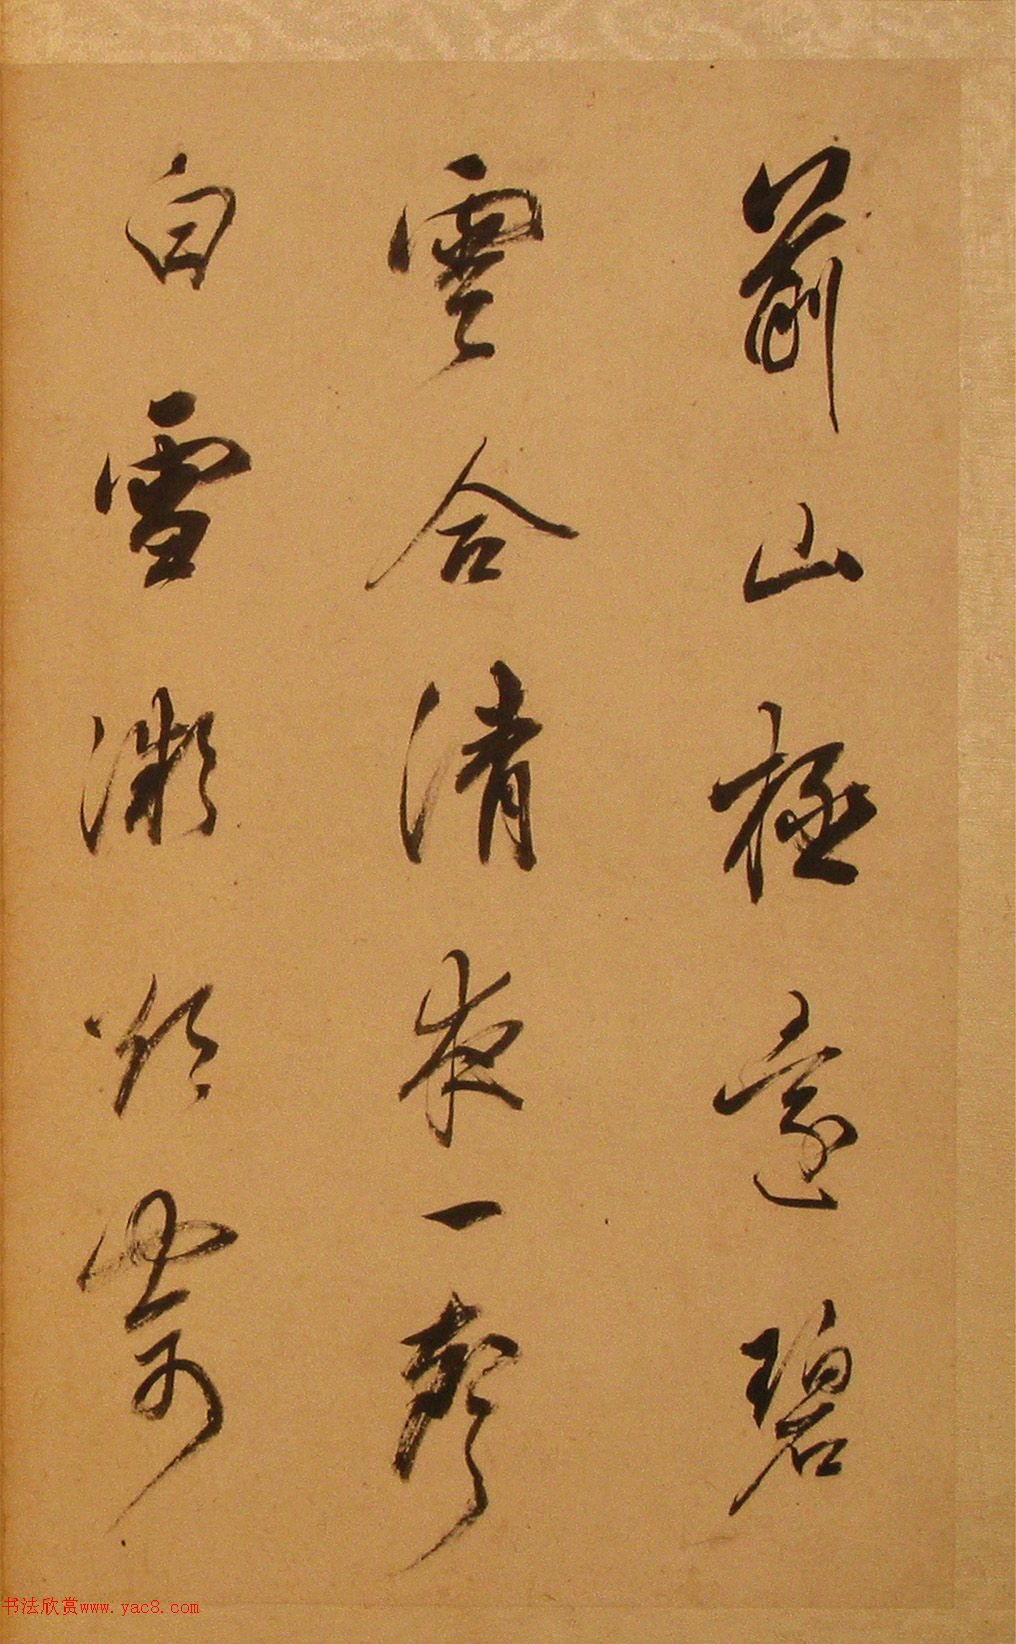 前山極遠碧
雲合清夜一聲
白雪微欲寄
书法欣赏www.yac8.com